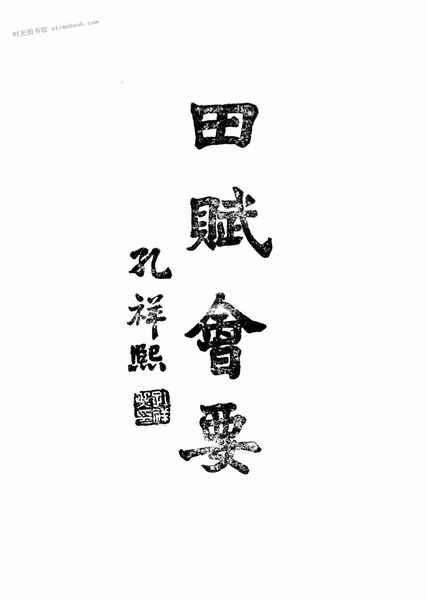 时光图书馆 etimebook.com
田賦會要
孔祥熙